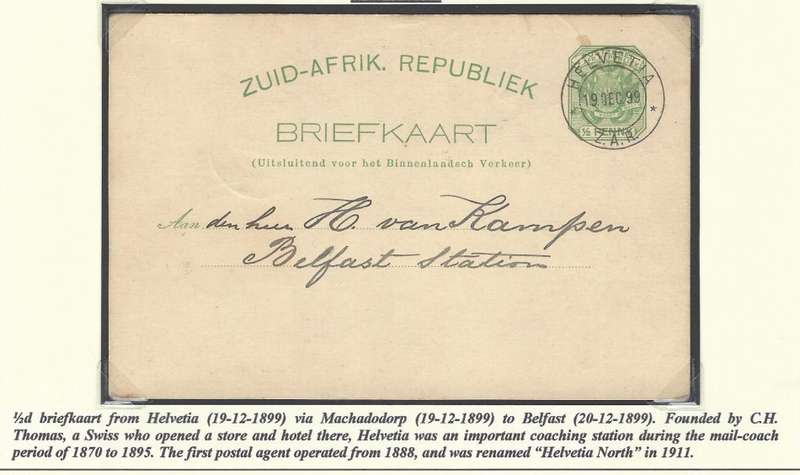 ZUID-AFRIK. REPUBLIEK
HELVETIA
19 DEC 99
Z.A.R.
½ PENNY
BRIEFKAART
(Uitsluitend voor het Binnenlaadsch Verkeer)
Aan den heer H. van Kampen
Belfast Station
½d briefkaart from Helvetia (19-12-1899) via Machadodorp (19-12-1899) to Belfast (20-12-1899). Founded by C.H.
Thomas, a Swiss who opened a store and hotel there, Helvetia was an important coaching station during the mail-coach
period of 1870 to 1895. The first postal agent operated from 1888, and was renamed “Helvetia North” in 1911.